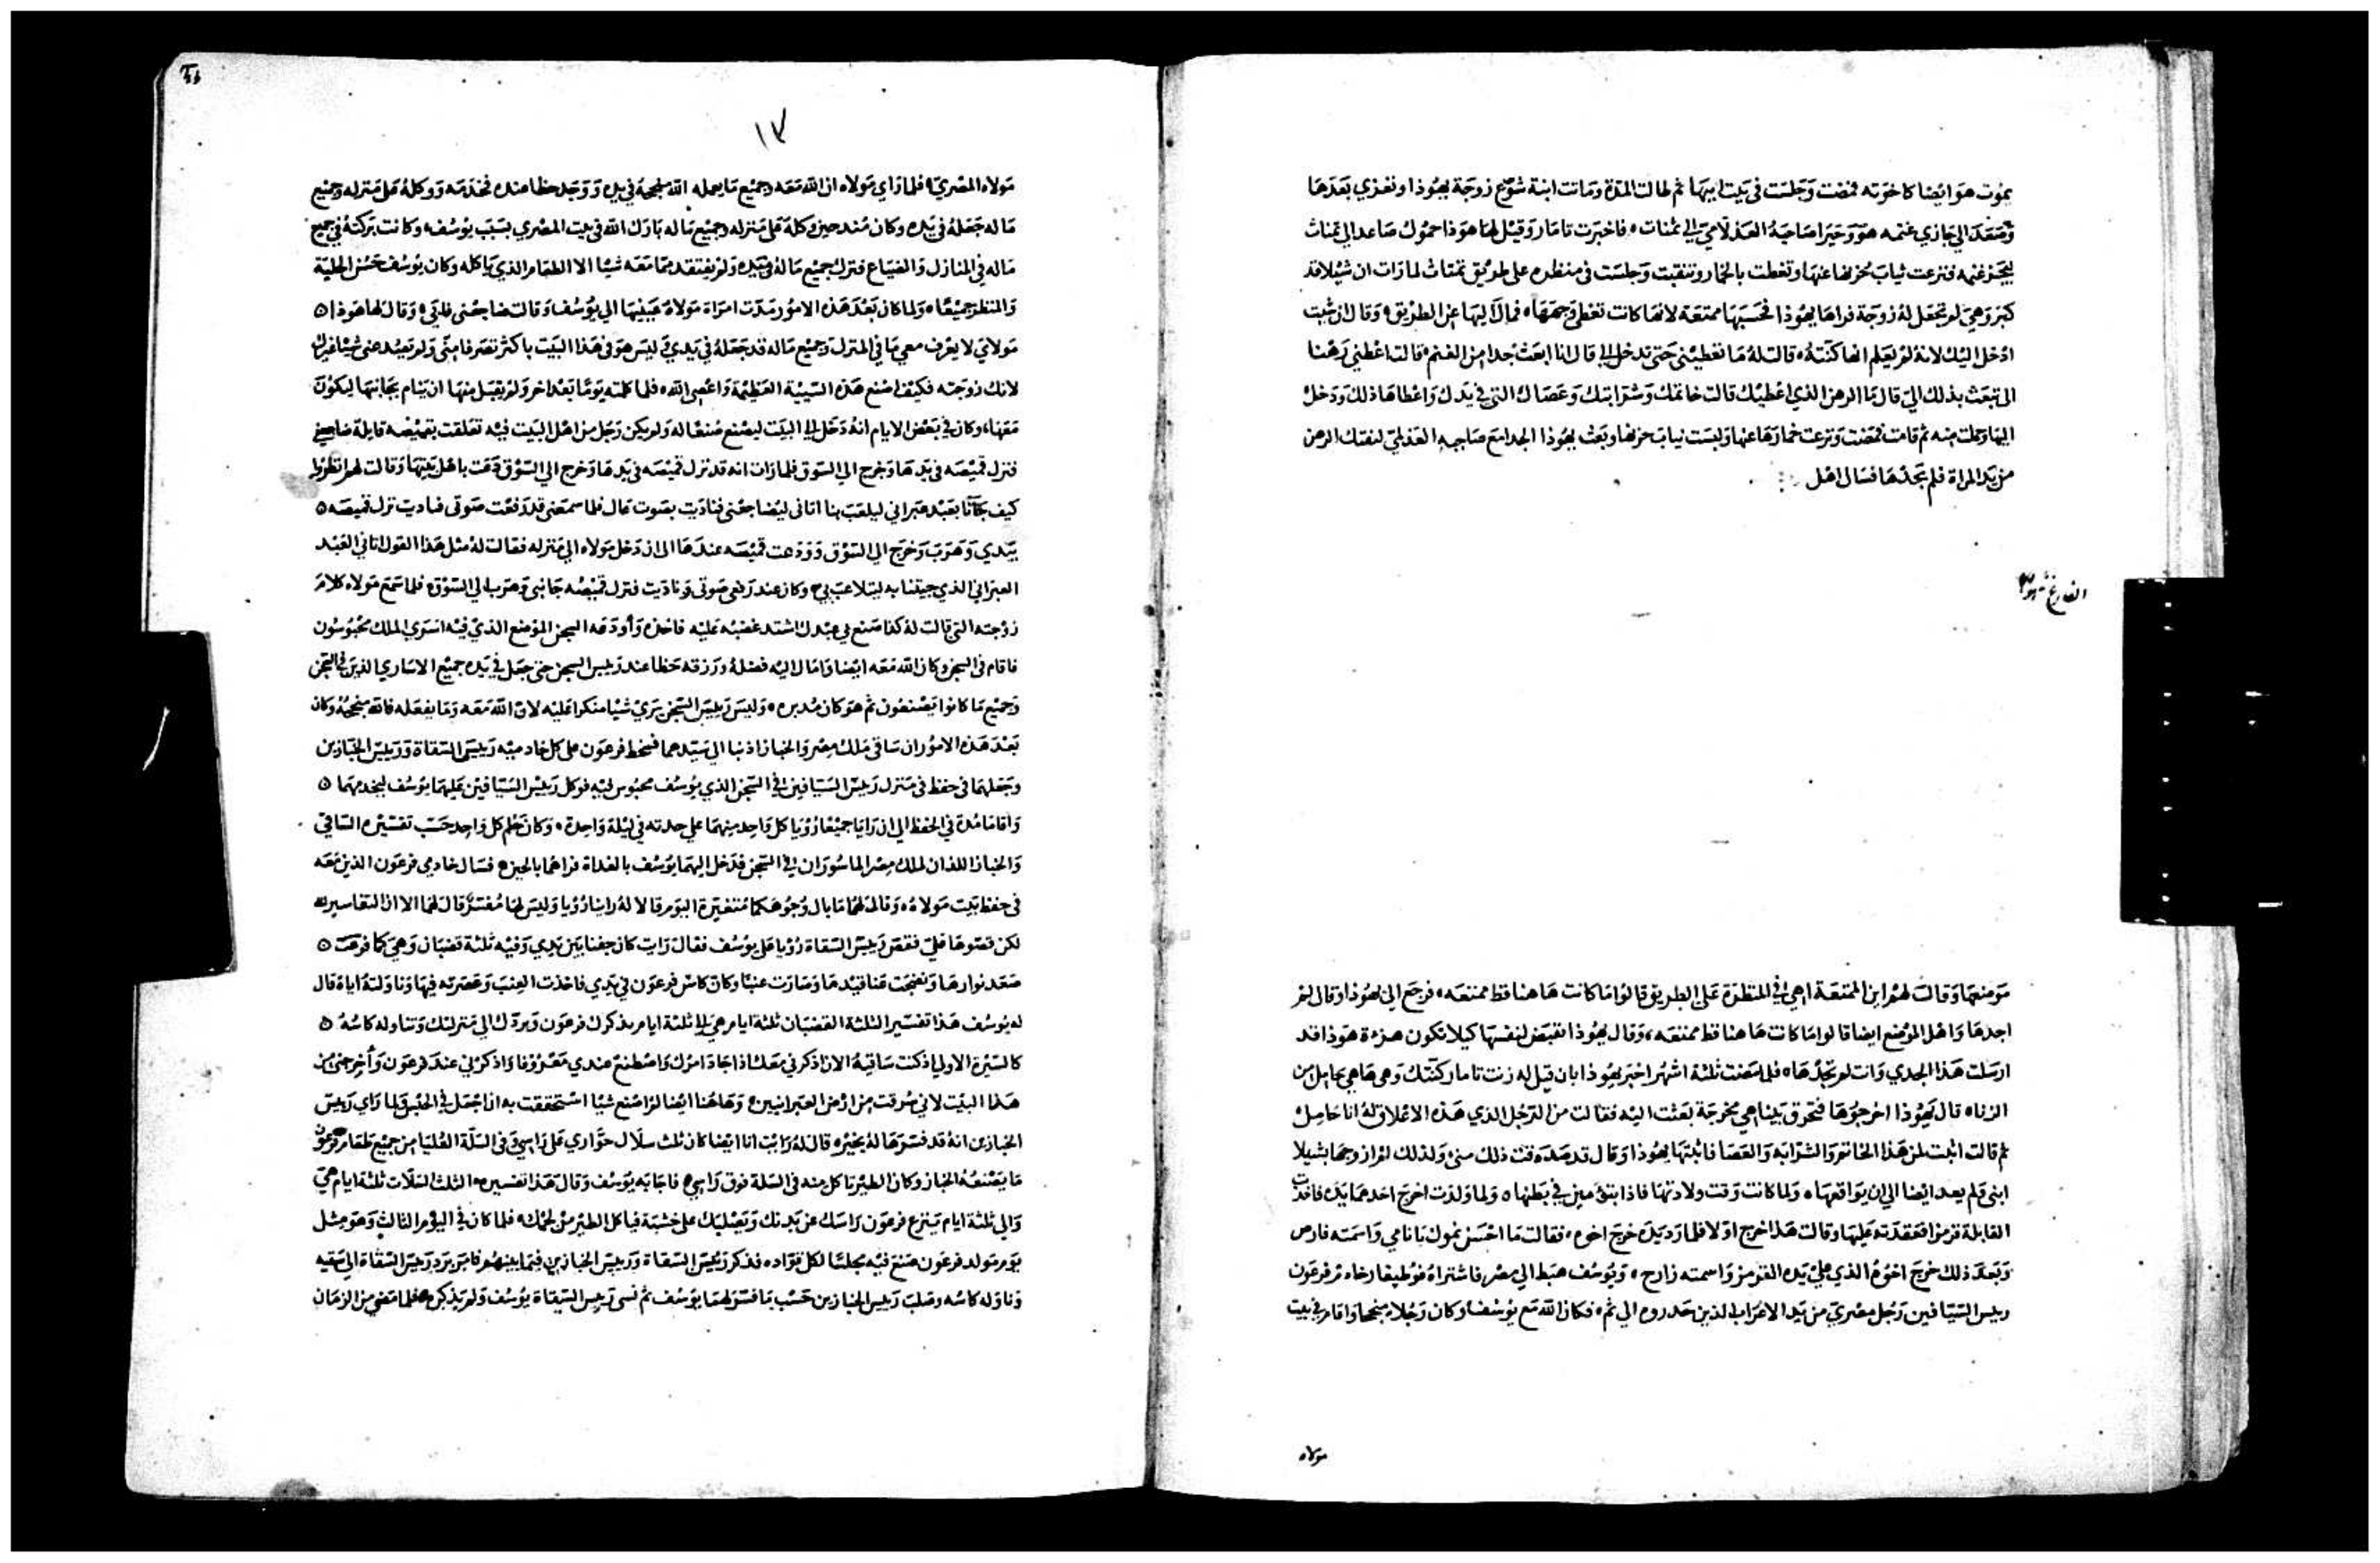 يموت هو ايضا كاخوته فمضت وجلست فى بيت ابيها ثم طالت المدة وماتت ابنة شوع زوجة يهوذا وتعزي بعدها
وصعد الي جازي غنمه هو وحيرا صاحبه العذلامي الي تمنات فاخبرت تامار وقيل لها هوذا حموك صاعد الي تمناث
ليجز غنمه فنزعت ثياب حزنها عنها وتغطت بالخمار وتنقبت وجلست فى منظره على طريق تمنات لما رات ان شيلا قد
كبر وهي لم تجعل له زوجة فراها يهوذا فحسبها ممتعة لانها كانت تغطي وجهها فمال اليها عن الطريق وقال ان شيت
ادخل اليك لانه لم يعلم انها كنته قالت له ما تعطيني حتى تدخل الي قال انا ابعث جدا من الغنم قالت اعطني رهنا
الى تبعث بذلك الي قال ما الرهن الذي اعطيك قالت خاتمك وشرابتك وعصاك التي في يدك واعطاها ذلك ودخل
اليها وحملت منه ثم قامت فمضت ونزعت خمارها عنها ولبست ثياب حزنها وبعث يهوذا الجدا مع صاحبه العذلمي لنفتك الرهن
من يد المراة فلم يجدها فسال اهل
موضعها وقالت لهم اين الممتعة اهي في المنظرة على الطريق قالوا ما كانت هاهنا قط ممتعه فرجع الي يهوذا وقال لم
اجدها واهل الموضع ايضا قالوا ما كانت هاهنا قط ممتعه وقال يهوذا تقبض لنفسها كيلا نكون هزءة هوذا قد
ارسلت هذا الجدي وانت لم تجدها فلما مضت ثلثة اشهر اخبر يهوذا بان قيل له زنت تامار كنتك وهى هاهي حامل من
الزنا قال يهوذا اخرجوها فتحرق بينا هي مخرجة بعثت اليه فقالت من الرجل الذي هذه الاعلاق له انا حامل
ثم قالت اثبت لمن هذا الخاتم والشرابه والعصا فاثبتها يهوذا وقال قد صدقت ذلك مني ولذلك لم ازوجها بشيلا
ابنى ولم يعد ايضا الي ان يواقعها ولما كانت وقت ولادتها فاذا بتؤمين في بطنها ولما ولدت اخرج احدهما يده فاخذت
القابلة قرمزا فعقدته عليها وقالت هذا خرج اولا فلما رد يده خرج اخوه فقالت ما احسن نموك يا نامي واسمته فارص
وبعد ذلك خرج اخوه الذي على يده القرمز واسمته زارح ويوسف هبط الي مصر فاشتراه فوطيفار خادم فرعون
ريس السيافين رجل مصري من يد الاعراب الذين حدروه الي ثم فكان الله مع يوسف وكان رجلا منجحا واقام في بيت
مولاه
١٧
مولاه المصري فلما راي مولاه ان الله معه وجميع ما يعمله الله منجحه في يده ووجد حظا عنده فخدمه ووكله على منزله وجميع
ما له جعله في يده وكان منذ حين وكله على منزله وجميع ما له بارك الله في بيت المصري بسبب يوسف وكانت بركته في جميع
ماله في المنازل والضياع فترك جميع ماله في يده ولم يفتقد مما معه شيا الا الطعام الذي ياكله وكان يوسف حسن الحلية
والمنظر جميعا ولما كان بعد هذه الامور مدت امراة مولاه عينيها الي يوسف وقالت ضاجعني فابي وقال لها هوذا
مولاي لا يعرف معي ما في المنزل وجميع ماله قد جعله في يدي ليس هو في هذا البيت باكثر نصرفا مني ولم تصد عني شيا غيرك
لانك زوجته فكيف اصنع هذه السيية العظيمة واعصي الله فلما كلمته يوما بعد اخر ولم يقبل منها ان ينام بجانبها ليكون
معها وكان في بعض الايام انه دخل الي البيت ليصنع صنعا له ولم يكن رجل من اهل البيت فيه تعلقت بقميصه قايلة ضاجعني
فترك قميصه فى يدها وخرج الي السوق فلما رات انه قد ترك قميصه في يدها وخرج الي السوق دعت باهل بيتها وقالت لهم انظروا
كيف جآنا بعبد عبراني ليلعب بنا اتاني ليضاجعني فناديت بصوت عال فلما سمعني قد رفعت صوتي فناديت ترك قميصه
بيدي وهرب وخرج الي السوق وودعت قميصه عندها الى ان دخل مولاه الي منزله فقالت له مثل هذا القول اتاني العبد
العبراني الذي جيتنا به ليتلاعب بي وكان عند رفعي صوتى وناديت فترك قميصه جانبي وهرب الي السوق فلما سمع مولاه كلام
زوجته التي قالت له كذا صنع بي عبدك اشتد غضبه عليه فاخذه وأودعه السجن الموضع الذي فيه اسري الملك محبوسون
فاقام فى السجن وكان الله معه ايضا وامال اليه فضله ورزقه حظا عند ريس السجن حتى جعل في يده جميع الاساري الذين في السجن
وجميع ما كانوا يصنعون ثم هو كان مدبره وليس ريس السجن يري شيا منكرا عليه لان الله معه وما يفعله فالله منجحه وكان
بعد هذه الامور ان ساقي ملك مصر والخباز اذنبا الي سيدهما فسخط فرعون على كل خادميه ريس السقاة وريس الخبازين
وجعلهما فى حفظ فى منزل ريس السيافين في السجن الذي يوسف محبوس فيه فوكل ريس السيافين عليهما يوسف ليخدمهما
واقاما مدة في الحفظ الي ان رايا جميعا رؤيا كل واحد منهما على حدته في ليلة واحدة وكان حلم كل واحد حسب تفسيره الساقي
والخباز اللذان لملك مصر الماسوران في السجن فدخل اليهما يوسف بالغداة فراهما بالحزن فسال خادمي فرعون الذين معه
فى حفظ بيت مولاه وقال لهما ما بال وجوهكما متغيرة اليوم قالا له راينا رؤيا وليس لها مفسر قال لهما الا ان التفاسير لله
لكن قصوها علي فقص ريس السقاة رؤياه على يوسف فقال رايت كان جفنا بين يدي وفيه ثلثة قضبان وهي كما فرعت
صعد نوارها ونضجت عناقيدها وصارت عنبا وكان كاس فرعون في يدي فاخذت العنب وعصرته فيها وناولته اياه قال
له يوسف هذا تفسير الثلثة القضبان ثلثة ايام هي الي ثلثة ايام يذكرك فرعون ويردك الي منزلتك وتناوله كاسه
كالسيرة الاولي اذ كنت ساقيه الان اذكرني معك اذا جاد امرك واصطنع عندي معروفا واذكرني عند فرعون وأخرجني من
هذا البيت لاني سرقت من ارض العبرانيين وهاهنا ايضا لم اصنع شيا استحققت به ان اجعل في الحبس ولما راي ريس
الخبازين انه قد فسرها له بخير قال له رايت انا ايضا كان ثلث سلال حواري على راسي وفى السلة العليا من جميع طعام فرعون
ما يصنعه الخباز وكان الطير تاكل منه في السلة فوق راسي فاجابه يوسف وقال هذا تفسيره الثلث السلات ثلثة ايام هي
والي ثلثة ايام ينزع فرعون راسك عن بدنك ويصلبك على خشبة فياكل الطير من لحمك فلما كان في اليوم الثالث وهو مثل
يوم مولد فرعون صنع فيه مجلسا لكل قواده فذكر ريس السقاة وريس الخبازين فيما بينهم فامر برد ريس السقاة الي سقيه
وناوله كاسه وصلب ريس الخبازين حسب ما فسر لهما يوسف ثم نسى ريس السقاة يوسف ولم يذكره فلما مضى من الزمان